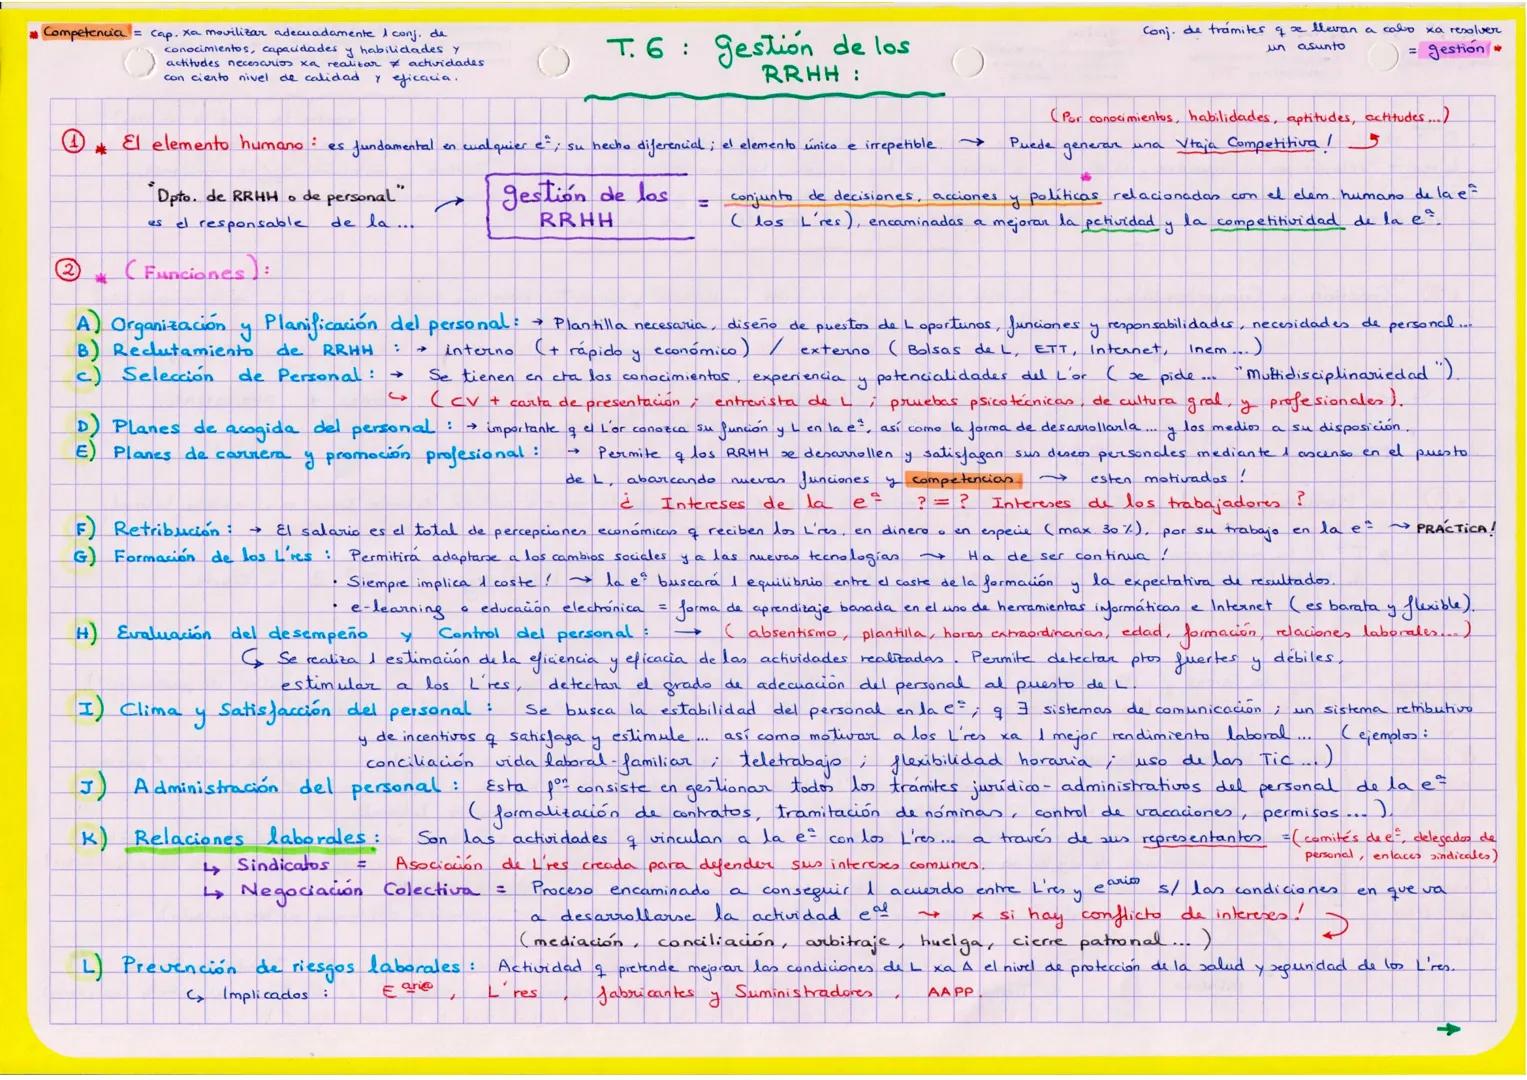 * Competencia = cap. xa movilizar adecuadamente 1 conj. de
conocimientos, capacidades y habilidades y
actitudes necesarios xa realizar ≠ actividades
con cierto nivel de calidad y eficacia.
T. 6 : Gestión de los
RRHH :
Conj. de trámites q se llevan a cabo xa resolver
un asunto = gestión *
(Por conocimientos, habilidades, aptitudes, actitudes...)
① * El elemento humano : es fundamental en cualquier eª ; su hecho diferencial ; el elemento único e irrepetible → Puede generar una Vtaja Competitiva !
"Dpto. de RRHH o de personal" → gestión de los = conjunto de decisiones, acciones y políticas* relacionadas con el elem. humano de la eª
es el responsable de la ... RRHH ( los L'res), encaminadas a mejorar la pctividad y la competitividad de la eª.
② * (Funciones) :
A) Organización y Planificación del personal : → Plantilla necesaria, diseño de puestos de L oportunos, funciones y responsabilidades, necesidades de personal...
B) Reclutamiento de RRHH : → interno (+ rápido y económico) / externo ( Bolsas de L, ETT, Internet, Inem ...)
C) Selección de Personal : → Se tienen en cta los conocimientos, experiencia y potencialidades del L'or ( se pide ... "Multidisciplinariedad").
↳ ( CV + carta de presentación ; entrevista de L ; pruebas psicotécnicas, de cultura gral, y profesionales ).
D) Planes de acogida del personal : → importante q el L'or conozca su función y L en la eª, así como la forma de desarrollarla ... y los medios a su disposición.
E) Planes de carrera y promoción profesional : → Permite q los RRHH se desarrollen y satisfagan sus deseos personales mediante 1 ascenso en el puesto
de L, abarcando nuevas funciones y competencias → esten motivados !
¿ Intereses de la eª ? = ? Intereses de los trabajadores ?
F) Retribución : → El salario es el total de percepciones económicas q reciben los L'res, en dinero o en especie (max 30%), por su trabajo en la eª → PRÁCTICA!
G) Formación de los L'res : Permitirá adaptarse a los cambios sociales y a las nuevas tecnologías → Ha de ser continua !
· Siempre implica 1 coste ! → la eª buscará 1 equilibrio entre el coste de la formación y la expectativa de resultados.
· e-learning o educación electrónica = forma de aprendizaje basada en el uso de herramientas informáticas e Internet ( es barata y flexible).
H) Evaluación del desempeño y Control del personal : → ( absentismo, plantilla, horas extraordinarias, edad, formación, relaciones laborales...)
↳ Se realiza 1 estimación de la eficiencia y eficacia de las actividades realizadas. Permite detectar ptos fuertes y débiles,
estimular a los L'res, detectar el grado de adecuación del personal al puesto de L.
I) Clima y Satisfacción del personal : Se busca la estabilidad del personal en la eª ; q ∃ sistemas de comunicación ; un sistema retributivo
y de incentivos q satisfaga y estimule ... así como motivar a los L'res xa 1 mejor rendimiento laboral ... ( ejemplos :
conciliación vida laboral-familiar ; teletrabajo ; flexibilidad horaria ; uso de las Tic ...)
J) Administración del personal : Esta fᵒⁿ consiste en gestionar todos los trámites jurídico-administrativos del personal de la eª
( formalización de contratos, tramitación de nóminas, control de vacaciones, permisos ... ).
K) Relaciones laborales : Son las actividades q vinculan a la eª con los L'res ... a través de sus representantos = ( comités de eª, delegados de
personal, enlaces sindicales)
↳ Sindicatos = Asociación de L'res creada para defender sus intereses comunes.
↳ Negociación Colectiva = Proceso encaminado a conseguir 1 acuerdo entre L'res y eᵃʳⁱᵒˢ s/ las condiciones en que va
a desarrollarse la actividad eᵃˡ → x si hay conflicto de intereses !
(mediación, conciliación, arbitraje, huelga, cierre patronal ... )
L) Prevención de riesgos laborales : Actividad q pretende mejorar las condiciones de L xa Δ el nivel de protección de la salud y seguridad de los L'res.
↳ Implicados : Eᵃʳⁱᵒ, L'res, fabricantes y Suministradores, AAPP.
→